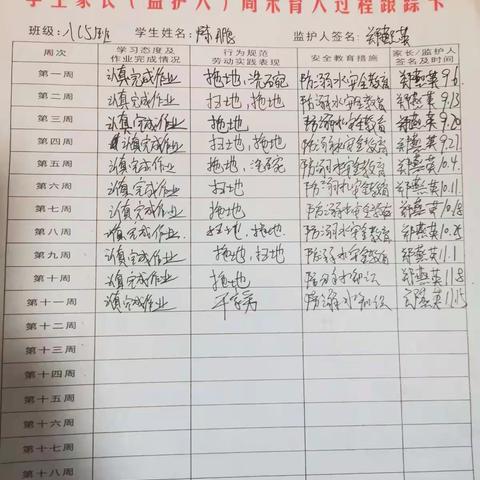 学生家长（监护人）周末育人过程跟踪卡
班级：八（5）班 学生姓名：陈鹏 监护人签名：郑燕英
周次 学习态度及作业完成情况 行为规范劳动实践表现 安全教育措施 家长/监护人签名及时间
第一周 认真完成作业 拖地，洗碗 防溺水安全教育 郑燕英9.6
第二周 认真完成作业 扫地，拖地 防溺水安全教育 郑燕英9.13
第三周 认真完成作业 拖地 防溺水安全教育 郑燕英9.20
第四周 认真完成作业 扫地，拖地 防溺水安全教育 郑燕英9.27
第五周 认真完成作业 拖地，洗碗 防溺水安全教育 郑燕英10.4
第六周 认真完成作业 扫地 防溺水安全教育 郑燕英10.11
第七周 认真完成作业 拖地 防溺水安全教育 郑燕英10.18
第八周 认真完成作业 扫地，拖地 防溺水安全教育 郑燕英10.25
第九周 认真完成作业 拖地，扫地 防溺水安全教育 郑燕英11.1
第十周 认真完成作业 拖地 防溺水知识 郑燕英11.8
第十一周 认真完成作业 防溺水知识 郑燕英11.15
第十二周
第十三周
第十四周
第十五周
第十六周
第十七周
第十八周